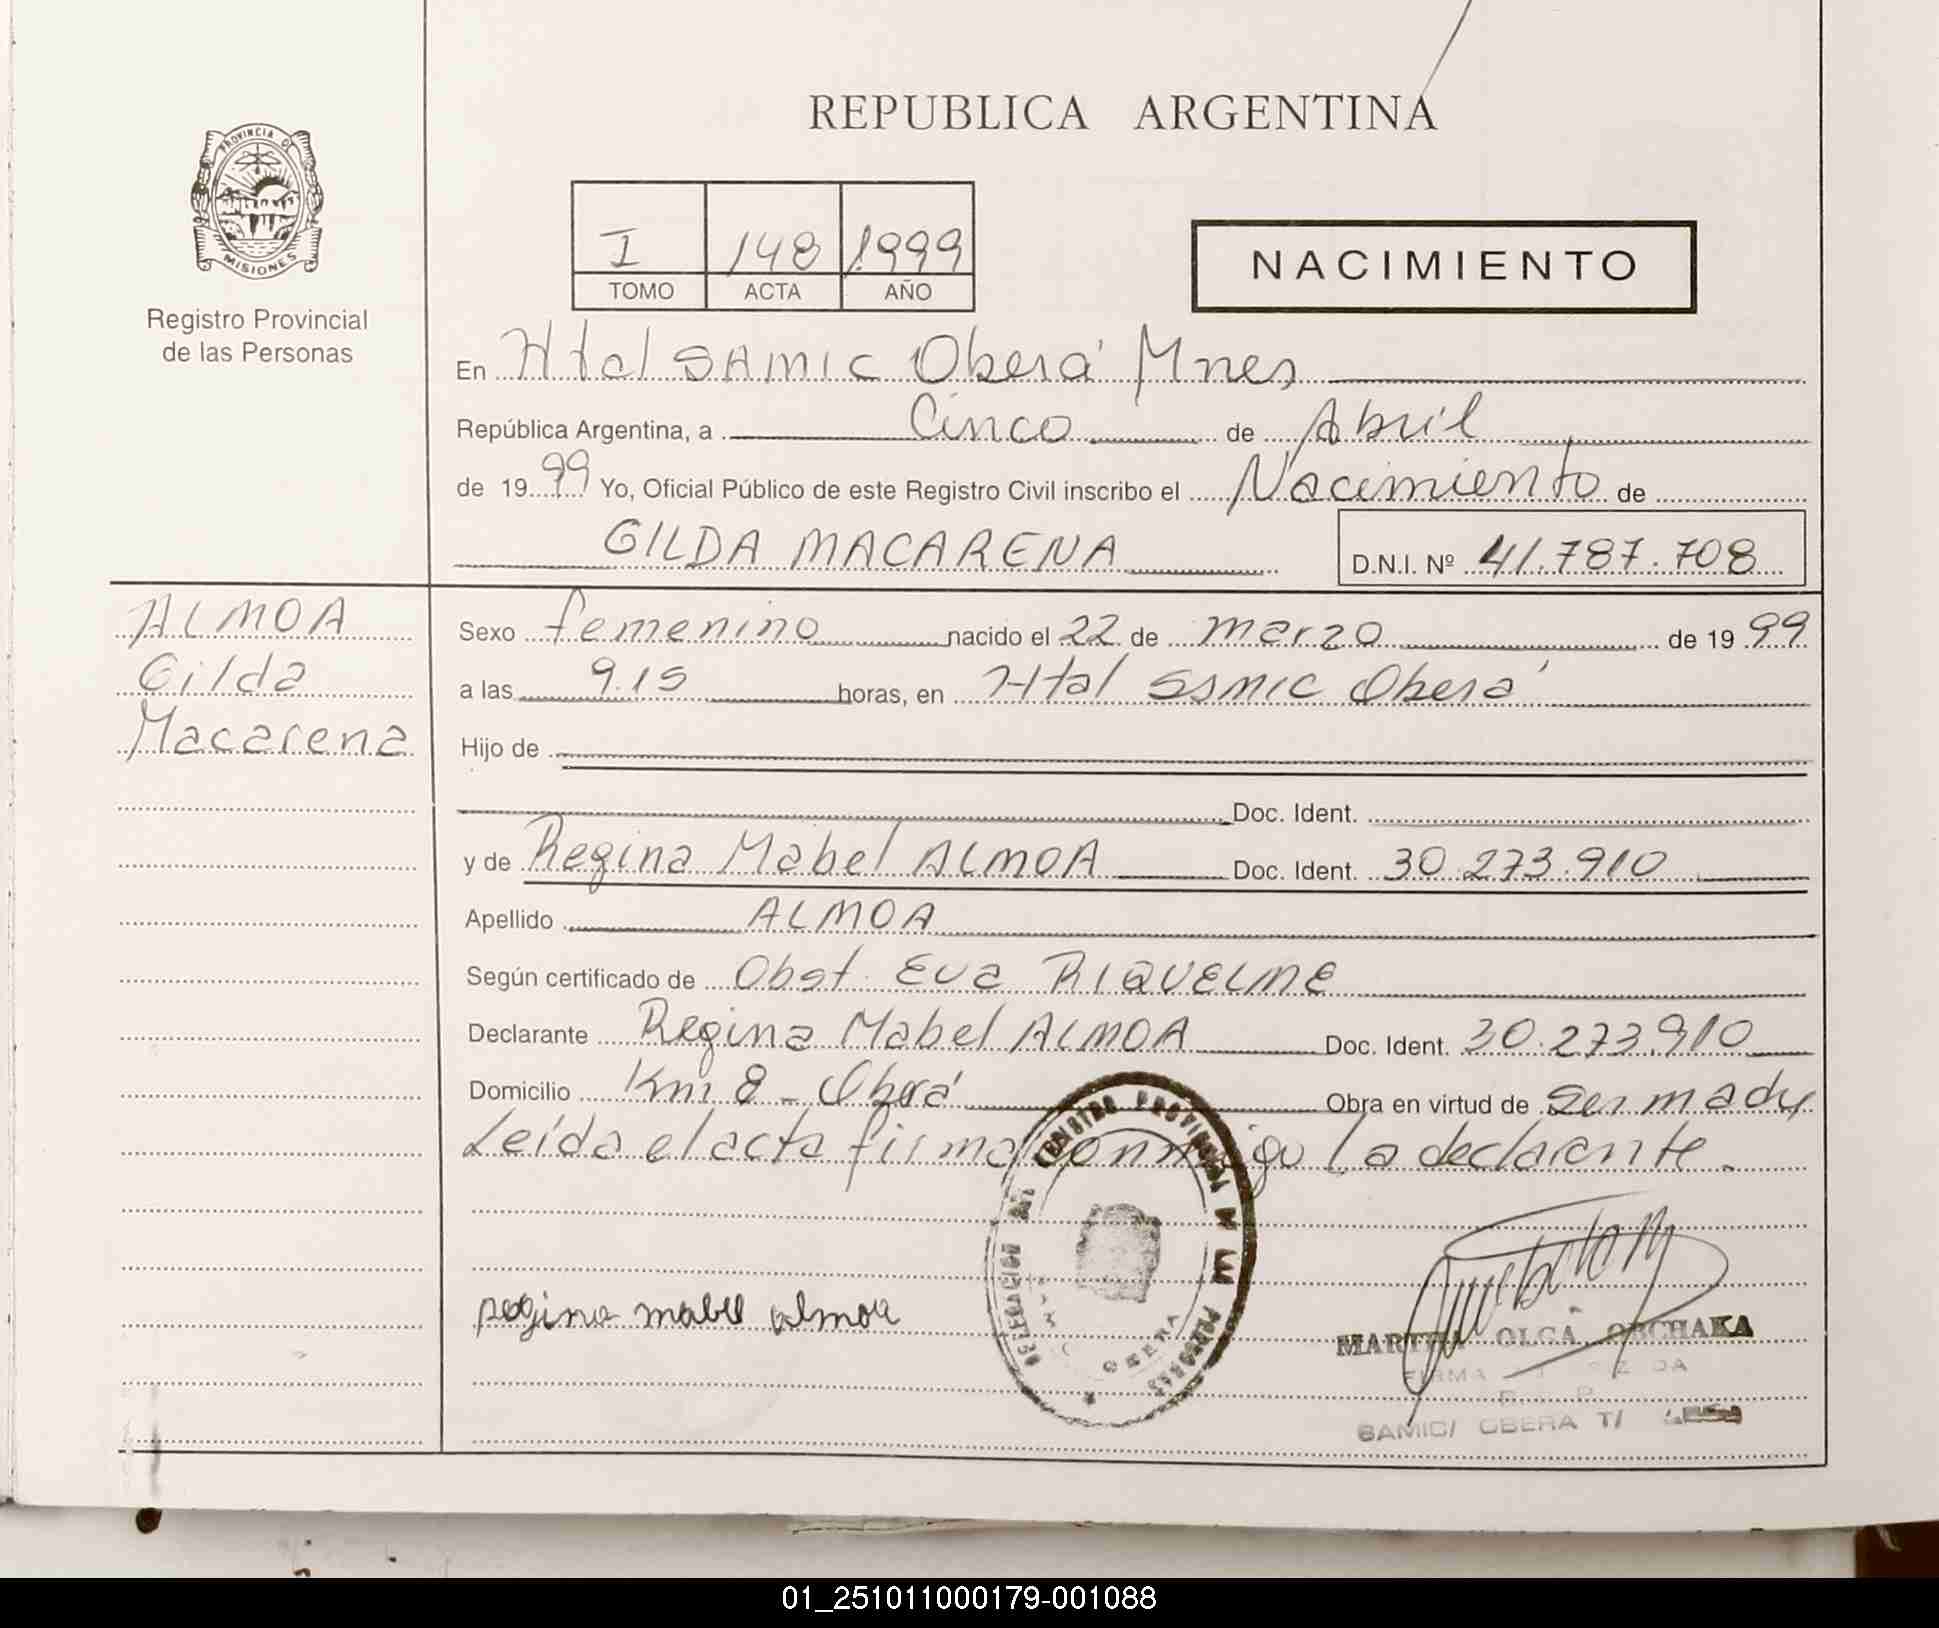 REPUBLICA ARGENTINA
PROVINCIA DE
MISIONES
Registro Provincial
de las Personas
I 148 1999
TOMO ACTA AÑO
NACIMIENTO
En Htal SAMIC Oberá Mnes
República Argentina, a Cinco de Abril
de 1999 Yo, Oficial Público de este Registro Civil inscribo el Nacimiento de
GILDA MACARENA D.N.I. Nº 41.787.708
ALMOA
Gilda
Macarena
Sexo femenino nacido el 22 de marzo de 1999
a las 9.15 horas, en Htal Samic Oberá
Hijo de
Doc. Ident.
y de Regina Mabel ALMOA Doc. Ident. 30.273.910
Apellido ALMOA
Según certificado de Obst. Eva RIQUELME
Declarante Regina Mabel ALMOA Doc. Ident. 30.273.910
Domicilio Km 8 - Oberá Obra en virtud de ser madre
Leída el acta firma conmigo la declarante.
regina mabel almoa
REGISTRO PROVINCIAL DE PERSONAS
DELEGACION
OBERA
MARTHA OLGA OBCHAKA
FIRMA
SAMIC/ OBERA T/
01_251011000179-001088